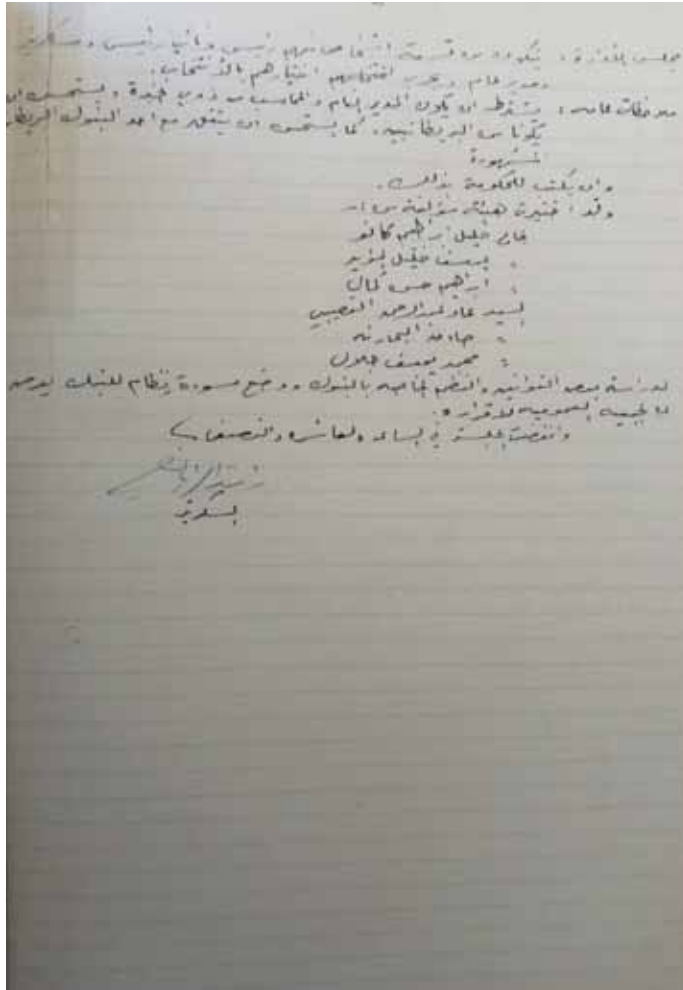 مجلس الادارة : يتكون من تسعة اشخاص منهم رئيس ونائب رئيس وسكرتير
ومدير عام ويجري انتخابهم اختيارهم بالانتخاب.
ملاحظات عامه : يشترط ان يكون المدير العام والمحاسب من ذوي خبرة ويستحسن ان
يكونا من البريطانيين. كما يستحسن ان يتفق مع احد البنوك البريطا
المشهورة
وان يكتب للحكومة بذلك.
وقد اختيرت هيئة مؤلفة من
الحاج خليل ابراهيم كانو
" يوسف خليل المؤيد
" ابراهيم حسن كمال
السيد عبدالرحمن القصيبي
"
" محمد يوسف جلال
لدراسة بعض القوانين والنظم الخاصه بالبنوك ووضع مسودة نظام للبنك يعرض
على الجمعيه العموميه لاقراره.
وانفضت الجلسة في الساعة العاشره والنصف
السكرتير